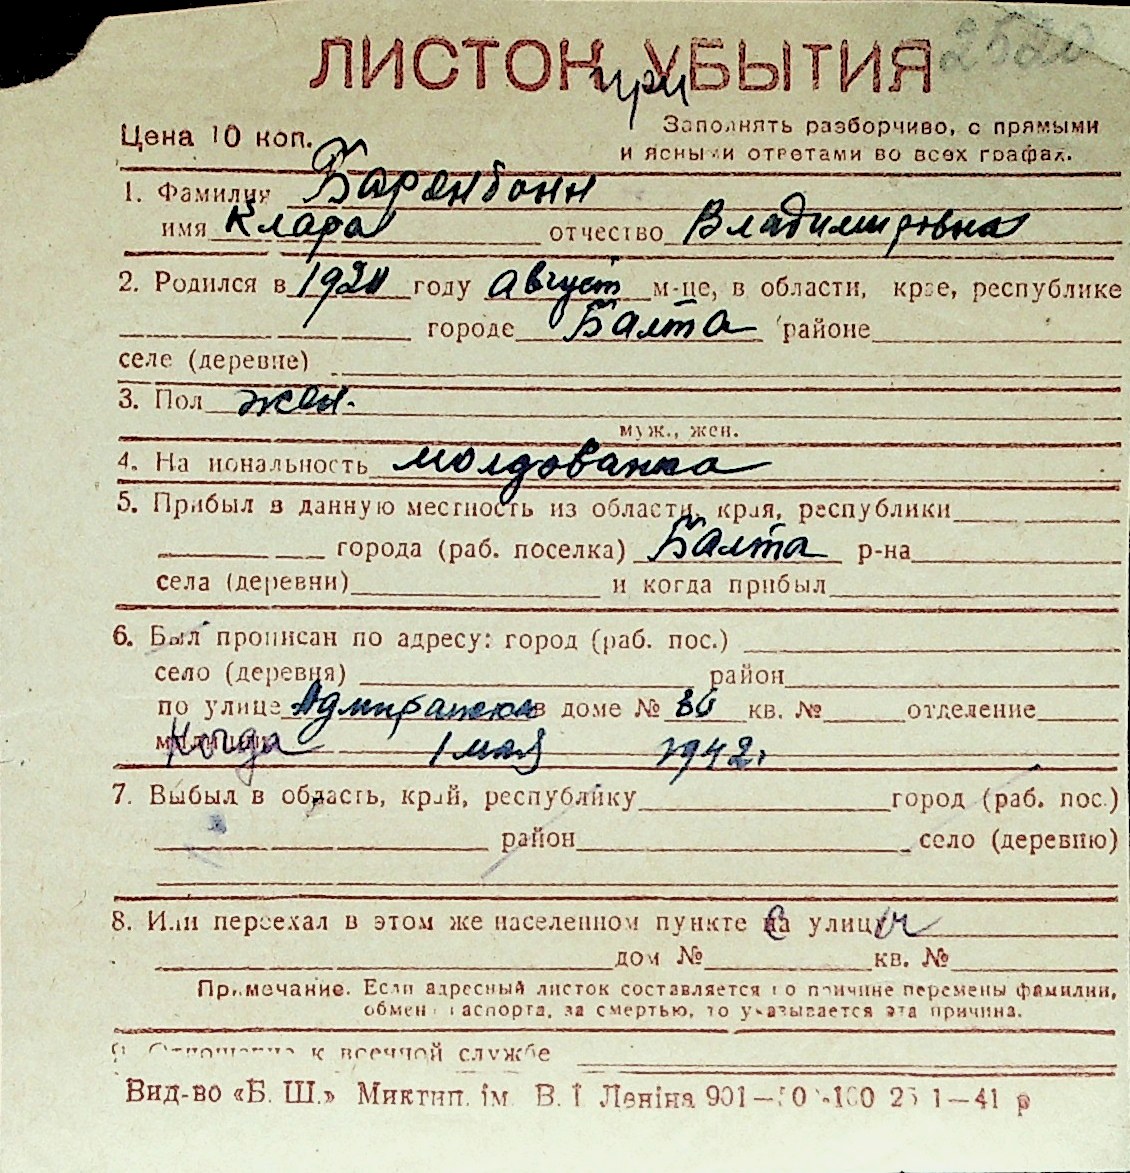 2520
ЛИСТОК УБЫТИЯ
при
Цена 10 коп.
Заполнять разборчиво, с прямыми
и ясными ответами во всех графах.
1. Фамилия Баренбойн
имя Клара отчество Владимировна
2. Родился в 1920 году август м-це, в области, крае, республике
городе Балта районе
селе (деревне)
3. Пол жен.
муж., жен.
4. Национальность молдованка
5. Прибыл в данную местность из области, края, республики
города (раб. поселка) Балта р-на
села (деревни) и когда прибыл
6. Был прописан по адресу: город (раб. пос.)
село (деревня) район
по улице в доме № кв. № отделение
милиции Когда 1 мая 1942 г.
7. Выбыл в область, край, республику город (раб. пос.)
район село (деревню)
8. Или переехал в этом же населенном пункте на улицу
с и
дом № кв. №
Примечание. Если адресный листок составляется по причине перемены фамилии,
обмена паспорта, за смертью, то указывается эта причина.
9. Отношение к военной службе
Вид-во «Б. Ш.» Миктип. ім. В. І. Леніна 901— 1—41 р